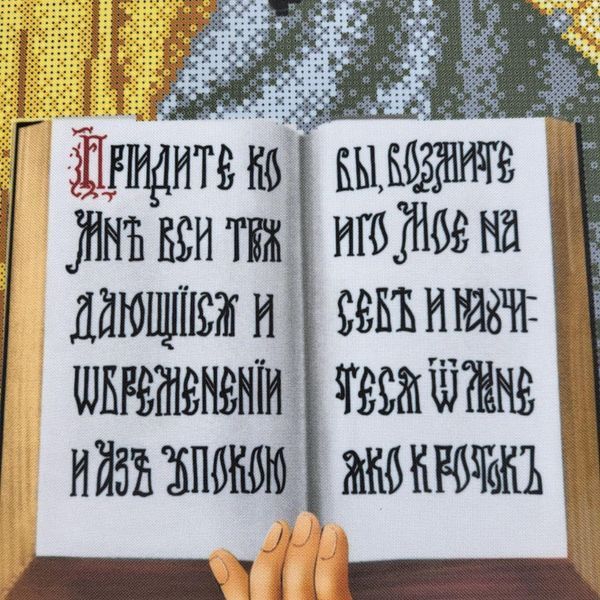 Прїидите ко
Мнѣ вси трꙋж
дающїисѧ и
ѡбремененїи
и Азъ ᲂупокою
вы, возмите
иго Мое на
себѣ и наꙋчи-
тесѧ ѿ Мене
ꙗко кротокъ